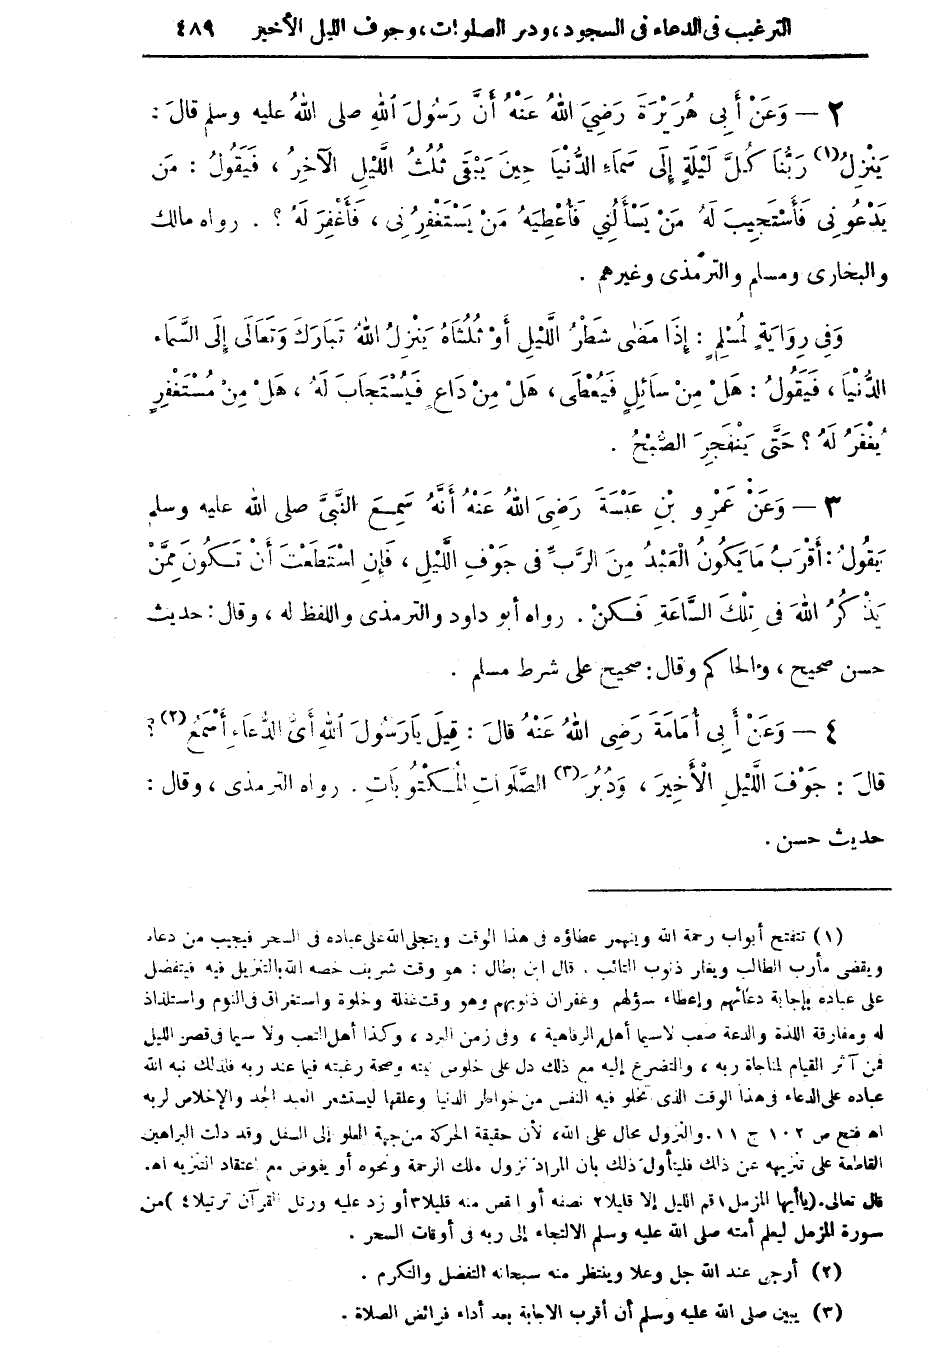 الترغيب فى الدعاء فى السجود، ودبر الصلوات، وجوف الليل الأخير ٤٨٩
٢ — وَعَنْ أَبِى هُرَيْرَةَ رَضِيَ اللهُ عَنْهُ أَنَّ رَسُولَ اللهِ صلى اللهُ عليه وسلم قالَ :
يَنْزِلُ (١) رَبُّنَا كُلَّ لَيْلَةٍ إِلَى سَمَاءِ الدُّنْيَا حِينَ يَبْقَى ثُلُثُ اللَّيْلِ الآخِرُ ، فَيَقُولُ : مَن
يَدْعُونِى فَأَسْتَجِيبَ لَهُ مَنْ يَسْأَلُنِي فَأُعْطِيَهُ مَنْ يَسْتَغْفِرُنِى ، فَأَغْفِرَ لَهُ ؟ . رواه مالك
والبخارى ومسلم والترمذى وغيرهم .
وَفِي رِوَايَةٍ لِمُسْلِمٍ : إِذَا مَضَى شَطْرُ اللَّيْلِ أَوْ ثُلُثَاهُ يَنْزِلُ اللهُ تَبَارَكَ وَتَعَالَى إِلَى السَّمَاءِ
الدُّنْيَا ، فَيَقُولُ : هَلْ مِنْ سَائِلٍ فَيُعْطَى ، هَلْ مِنْ دَاعٍ فَيُسْتَجَابَ لَهُ ، هَلْ مِنْ مُسْتَغْفِرٍ
يُغْفَرُ لَهُ ؟ حَتَّى يَنْفَجِرَ الصُّبْحُ .
٣ — وَعَنْ عَمْرِو بْنِ عَبَسَةَ رَضِىَ اللهُ عَنْهُ أَنَّهُ سَمِعَ النَّبِيَّ صلى الله عليه وسلم
يَقُولُ : أَقْرَبُ مَا يَكُونُ الْعَبْدُ مِنَ الرَّبِّ فى جَوْفِ اللَّيْلِ ، فَإِنِ اسْتَطَعْتَ أَنْ تَكُونَ مِمَّنْ
يَذْكُرُ اللهَ فى تِلْكَ السَّاعَةِ فَكُنْ . رواه أبو داود والترمذى واللفظ له ، وقال : حديث
حسن صحيح ، والحاكم وقال : صحيح على شرط مسلم .
٤ — وَعَنْ أَبِى أُمَامَةَ رَضِىَ اللهُ عَنْهُ قَالَ : قِيلَ يَارَسُولَ اللهِ أَىُّ الدُّعَاءِ أَسْمَعُ (٢) ؟
قالَ : جَوْفَ اللَّيْلِ الْأَخِيرَ ، وَدُبُرَ (٣) الصَّلَوَاتِ الْمَكْتُوبَاتِ . رواه الترمذى ، وقال :
حديث حسن .
(١) تتفتح أبواب رحمة الله وينهمر عطاؤه فى هذا الوقت ويتجلى الله على عباده فى السحر فيجيب من دعاه
ويقضى مآرب الطالب ويغفر ذنوب التائب . قال ابن بطال : هو وقت شريف خصه الله بالتنزيل فيه فيتفضل
على عباده بإجابة دعائهم وإعطاء سؤلهم وغفران ذنوبهم وهو وقت غفلة وخلوة واستغراق فى النوم واستلذاذ
له ومفارقة اللذة والدعة صعب لاسيما أهل الرفاهية ، وفى زمن البرد ، وكذا أهل التعب ولا سيما فى قصر الليل
فمن آثر القيام لمناجاة ربه ، والتضرع إليه مع ذلك دل على خلوص نيته وصحة رغبته فيما عند ربه فلذلك نبه الله
عباده على الدعاء فى هذا الوقت الذى تخلو فيه النفس من خواطر الدنيا وعلقها ليستشعر العبد الجد والإخلاص لربه
اه فتح ص ١٠٢ ج ١١. والنزول محال على الله، لأن حقيقة الحركة من جهة العلو إلى السفل وقد دلت البراهين
القاطعة على تنزيهه عن ذلك فليتأول ذلك بان المراد نزول ملك الرحمة ونحوه أو يفوض مع اعتقاد التنزيه اه.
قال تعالى. (ياأيها المزمل ١ قم الليل إلا قليلا ٢ نصفه أو انقص منه قليلا ٣ أو زد عليه ورتل القرآن ترتيلا ٤) من
سورة المزمل ليعلم أمته صلى الله عليه وسلم الالتجاء إلى ربه فى أوقات السحر .
(٢) أرجى عند الله جل وعلا وينتظر منه سبحانه التفضل والتكرم .
(٣) يبين صلى الله عليه وسلم أن أقرب الاجابة بعد أداء فرائض الصلاة .